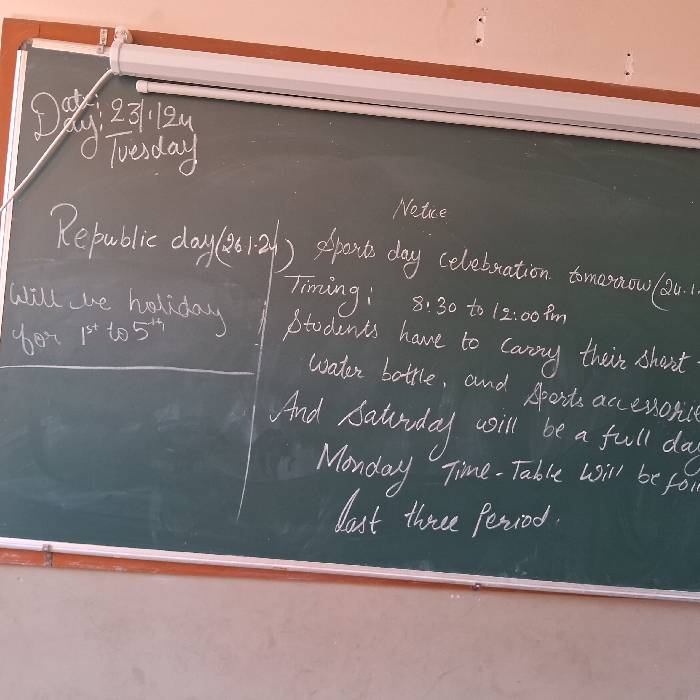 Date: 23/1/24
Day: Tuesday
Republic day (26.1.24)
Will be holiday
for 1st to 5th
Notice
Sports day celebration tomorrow (24.1.
Timing: 8:30 to 12:00 Pm
Students have to carry their short
water bottle, and Sports accessories
And Saturday will be a full day
Monday Time-Table will be
last three Period.